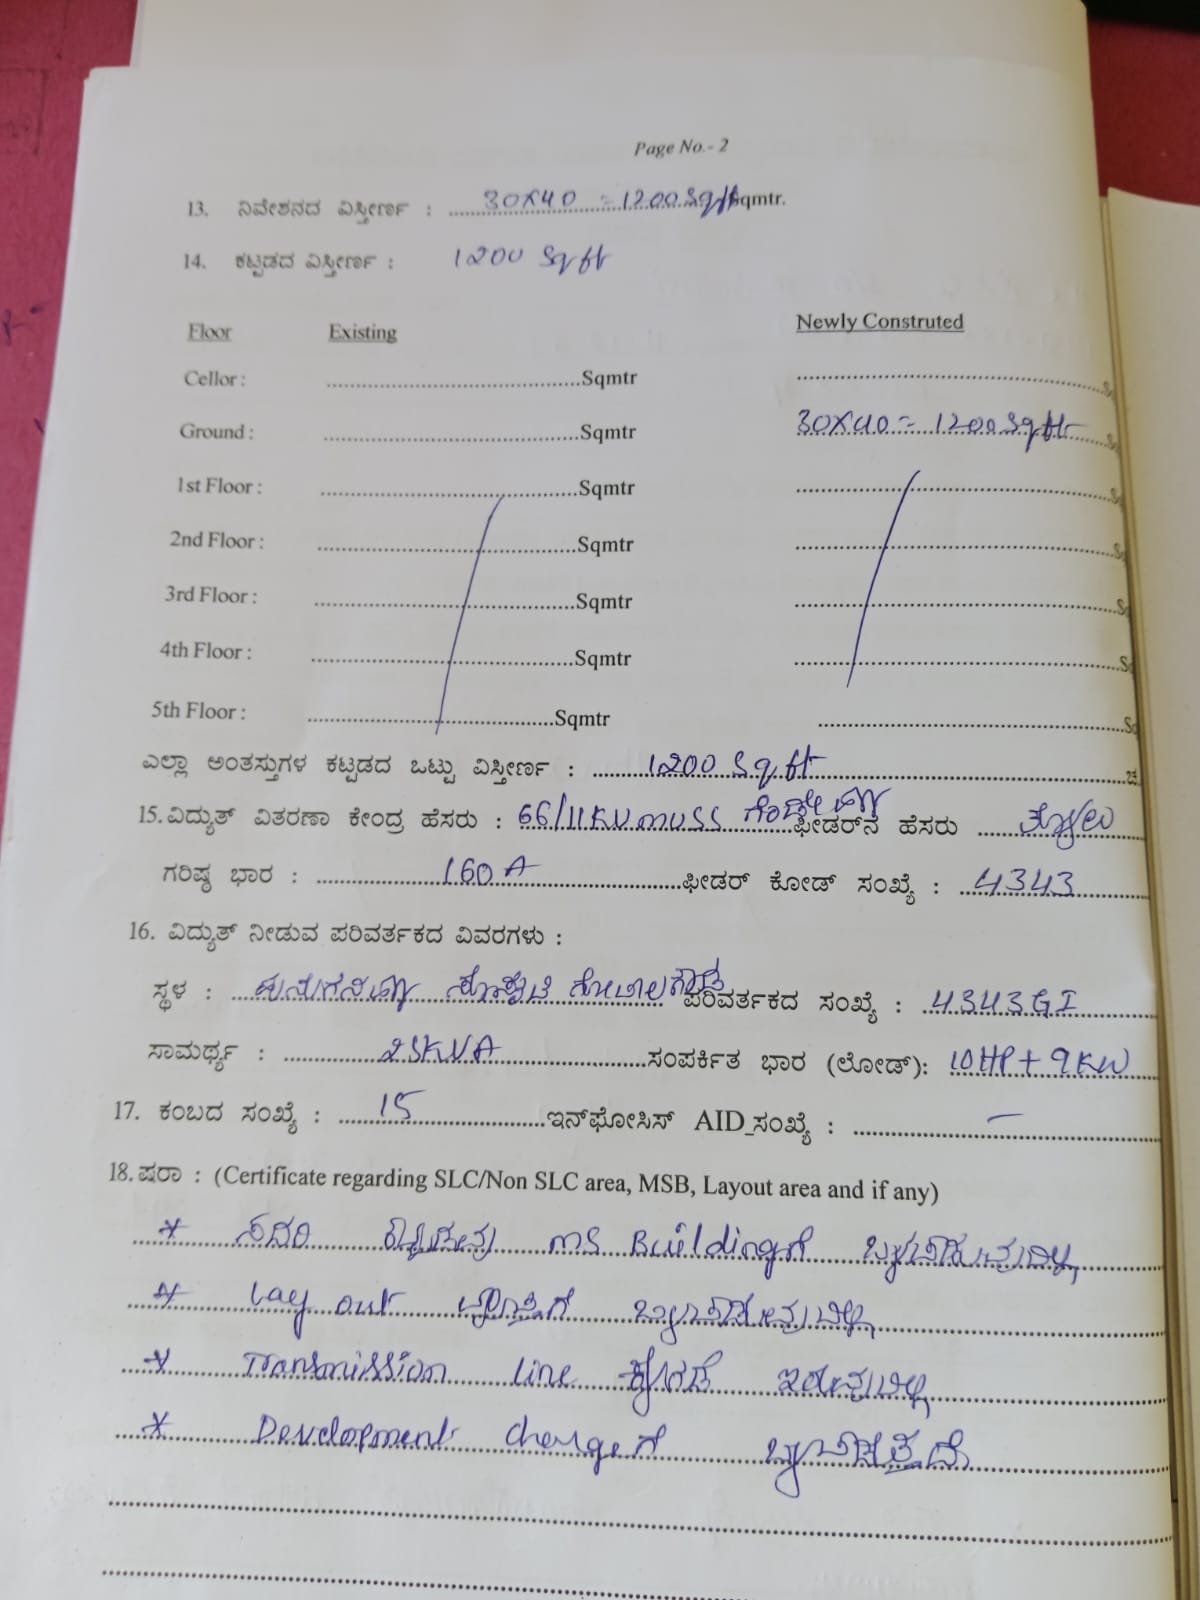 Page No.- 2
13. ನಿವೇಶನದ ವಿಸ್ತೀರ್ಣ : 30X40 = 1200 Sqft Sqmtr.
14. ಕಟ್ಟಡದ ವಿಸ್ತೀರ್ಣ : 1200 Sqft
Floor Existing Newly Construted
Cellor : Sqmtr
Ground : Sqmtr 30X40 = 1200 Sqft
1st Floor : Sqmtr
2nd Floor : Sqmtr
3rd Floor : Sqmtr
4th Floor : Sqmtr
5th Floor : Sqmtr
ಎಲ್ಲಾ ಅಂತಸ್ತುಗಳ ಕಟ್ಟಡದ ಒಟ್ಟು ವಿಸ್ತೀರ್ಣ : 1200 Sqft ಚ
15. ವಿದ್ಯುತ್ ವಿತರಣಾ ಕೇಂದ್ರ ಹೆಸರು : 66/11KV MUSS ಫೀಡರ್‌ನ ಹೆಸರು
ಗರಿಷ್ಠ ಭಾರ : 160 A ಫೀಡರ್ ಕೋಡ್ ಸಂಖ್ಯೆ : 4343
16. ವಿದ್ಯುತ್ ನೀಡುವ ಪರಿವರ್ತಕದ ವಿವರಗಳು :
ಸ್ಥಳ : ಪರಿವರ್ತಕದ ಸಂಖ್ಯೆ : 4343GI
ಸಾಮರ್ಥ್ಯ : 25KVA ಸಂಪರ್ಕಿತ ಭಾರ (ಲೋಡ್): 10HP + 9KW
17. ಕಂಬದ ಸಂಖ್ಯೆ : 15 ಇನ್‌ಫೋಸಿಸ್ AID_ಸಂಖ್ಯೆ : —
18. ಷರಾ : (Certificate regarding SLC/Non SLC area, MSB, Layout area and if any)
* ಸದರಿ MS Buildingಗೆ
* Lay out
* Transmission line ಕೆಳಗಡೆ ಇರುವುದಿಲ್ಲ
* Development chargeಗೆ